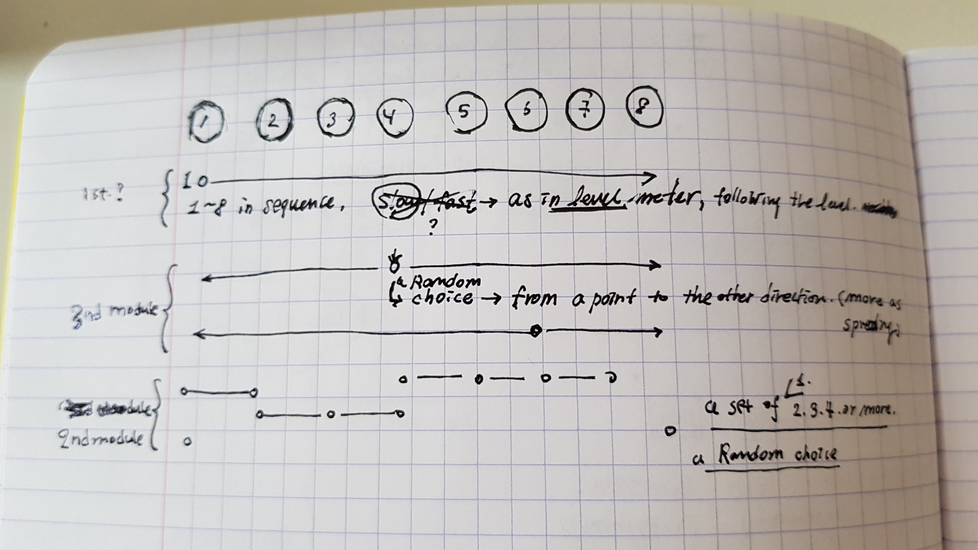 1 2 3 4 5 6 7 8
1st. ?
1~8 in sequence. slow/fast → as in level-meter, following the level.
?
a Random
choice → from a point to the other direction. (more as
2nd module
module
1.
a set of 2. 3. 4. or more.
2nd module
a Random choice